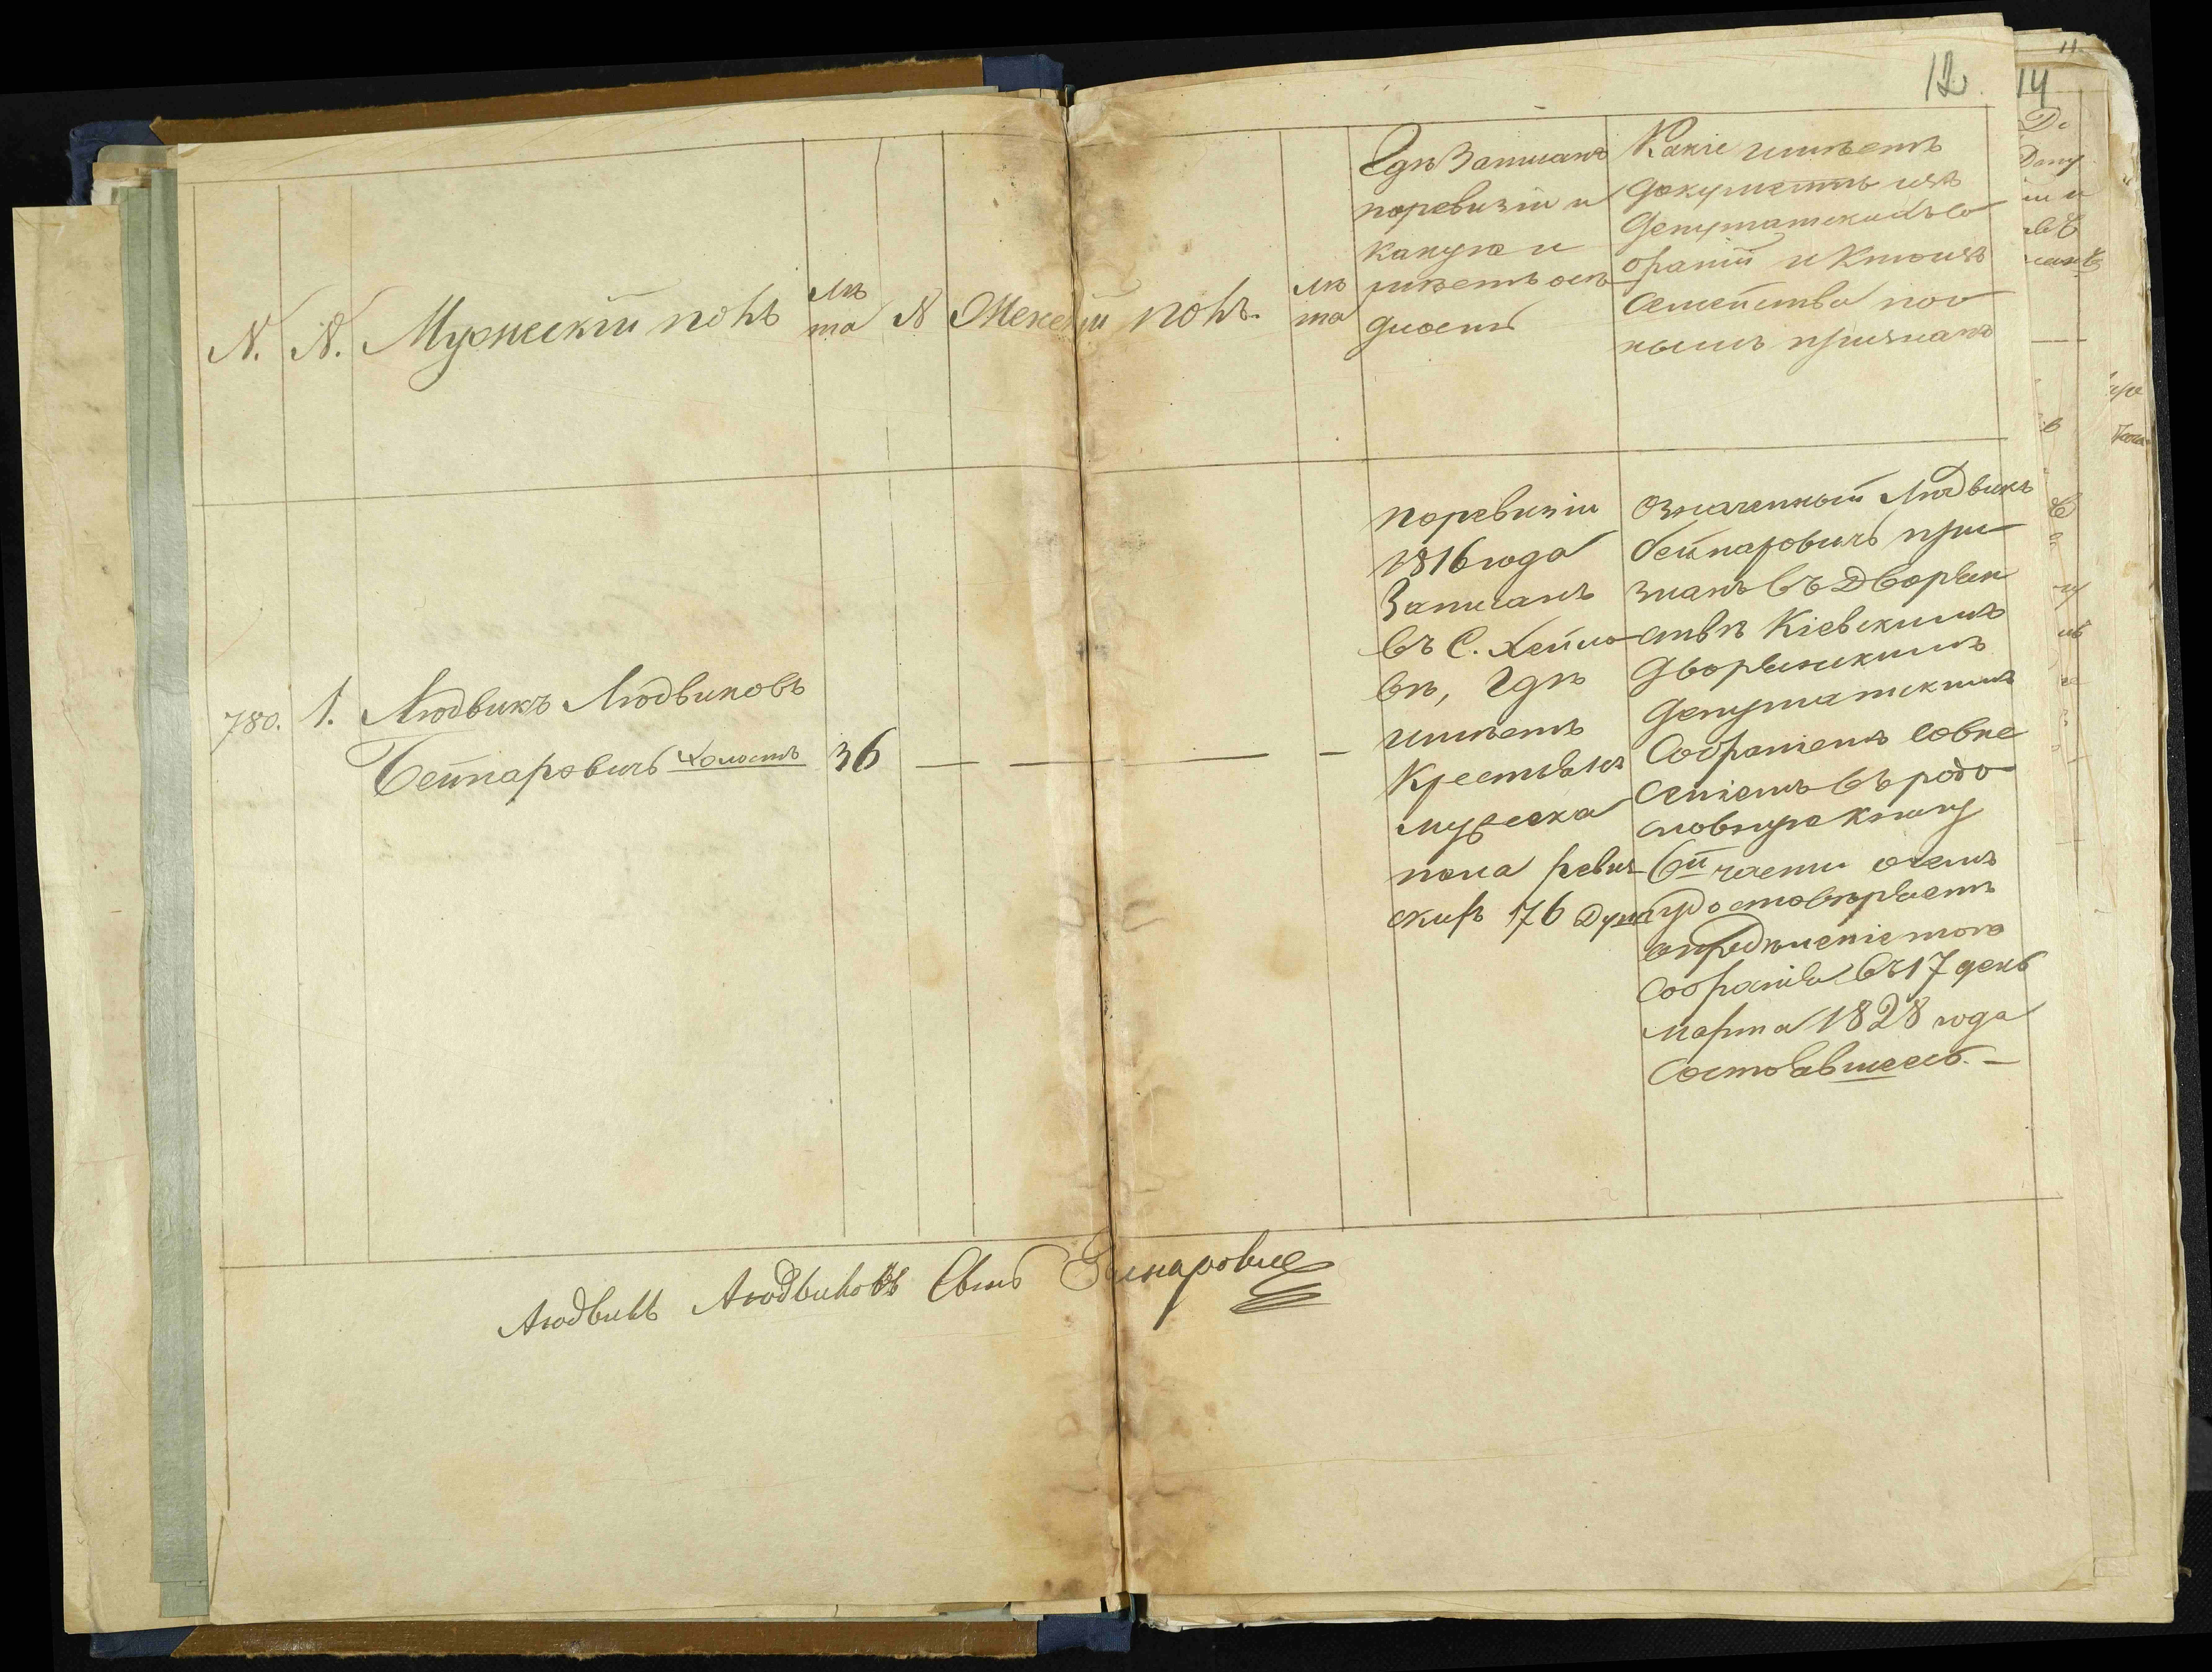 12.
N.
N.
Мужескій полъ
лѣ
та
N
Женскій полъ.
лѣ
та
Гдѣ Записанъ
поревизіи и
какую и
имѣетъ осѣ
длость
Какіе имѣетъ
документы изъ
депутатскихъ со
браній и ктоизъ
семейства по
нымъ признанъ
780.
1.
Людвикъ Людвиковъ
Бейнаровичъ холостъ
36
поревизіи
1816 года
Записанъ
въ С.
вѣ, гдѣ
имѣетъ
Крестьянъ
мужеска
пола ревиз
скихъ 76 душъ
Означенный Людвикъ
бейнаровичъ при
знанъ въ Дворян
ствѣ Кіевскимъ
дворянскимъ
депутатскимъ
Собраніемъ совне
сеніемъ въ родо
словную книгу
6й части очемъ
удостовѣряетъ
опредѣленіе того
Собранія въ 17 день
марта 1828 года
Состоявшееся. —
Людвикъ Людвиковъ Сынъ Бейнаровичъ
14